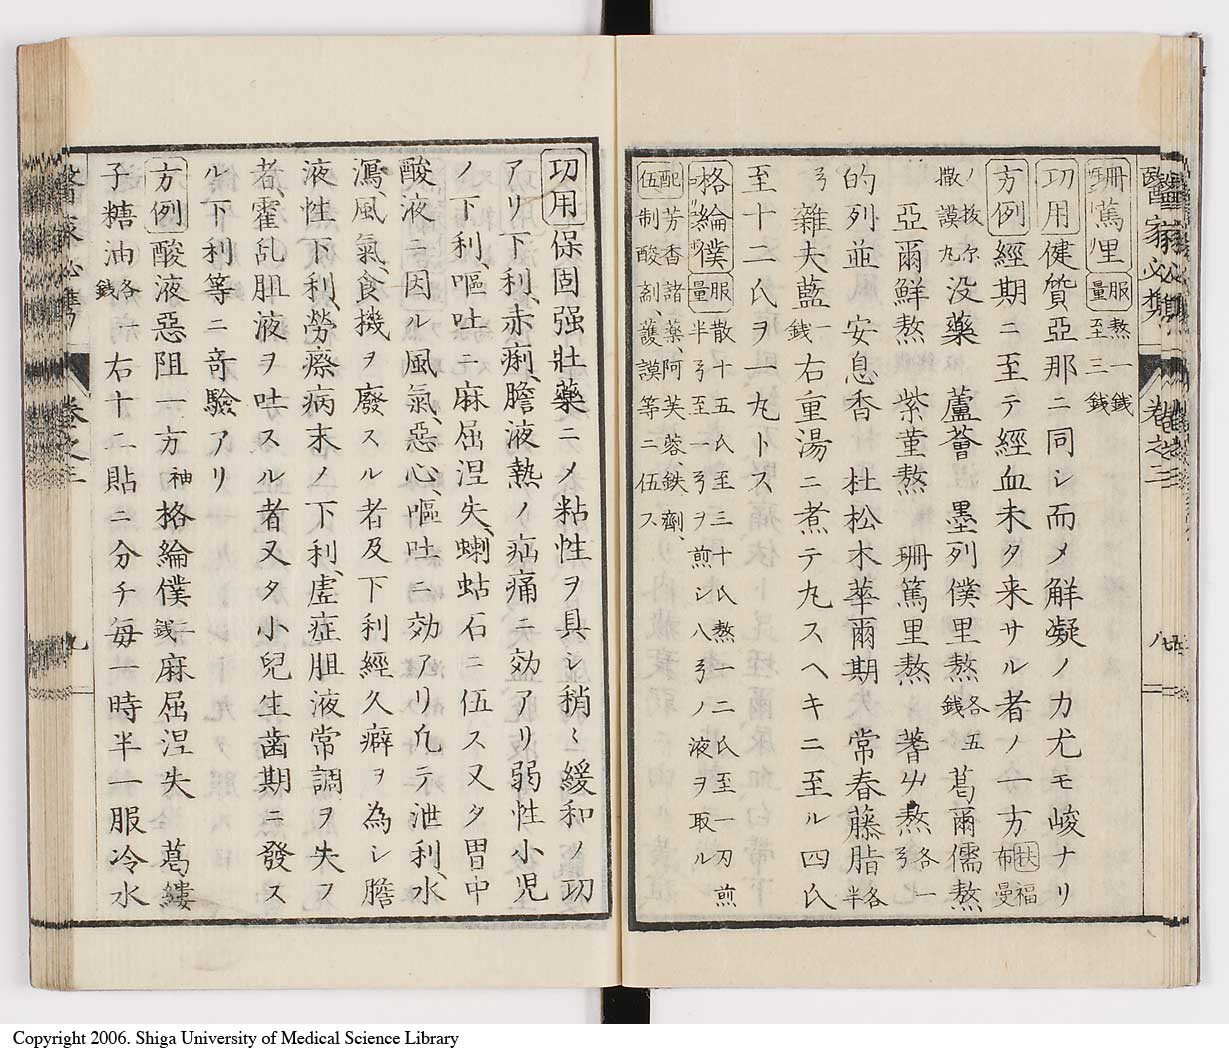 醫家必携 卷之二 八
珊篤里 服量 熬一錢至三錢
功用 健質亞那ニ同シ而メ解凝ノ力尤モ峻ナリ
方例 經期ニ至テ經血未タ来サルノ一方 扶福 布曼
ノ抜尓撒謨丸 没藥 蘆薈 墨列僕里熬各五錢 葛爾儒熬
亞爾鮮熬 紫菫熬 珊篤里熬 蓍艸熬各一弓
的列並 安息香 杜松木華爾期 常春藤脂各半弓
雑夫藍一錢 右重湯ニ煮テ丸スヘキニ至ル四氏
至十二氏ヲ一丸トス
格綸僕 服量 散十五氏至三十氏熬一二氏至一刃煎
半弓至一弓ヲ煎シ八弓ノ液ヲ取ル
配伍 芳香諸藥阿芙蓉、鉄劑、制酸剤、護謨等ニ伍ス
功用 保固强壯藥ニメ粘性ヲ具シ稍〻緩和ノ功
アリ下利、赤痢、膽液熱ノ疝痛ニ効アリ弱性小児
ノ下利、嘔吐ニ麻屈涅失、蝲蛄石ニ伍ス又タ胃中
酸液ニ因ル風氣、惡心、嘔吐ニ効アリ凢テ泄利、水
瀉、風氣、食機ヲ廢スル者及下利經久癖ヲ為シ膽
液性下利、勞瘵病末ノ下利、虚症胆液常調ヲ失フ
者、霍乱胆液ヲ吐スル者又タ小兒生歯期ニ發ス
ル下利等ニ竒驗アリ
方例 酸液惡阻一方 袖 格綸僕二錢 麻屈涅失 葛縷
子糖油各一錢 右十二貼ニ分チ毎一時半一服冷水
醫家必携 卷之二 九
Copyright 2006. Shiga University of Medical Science Library